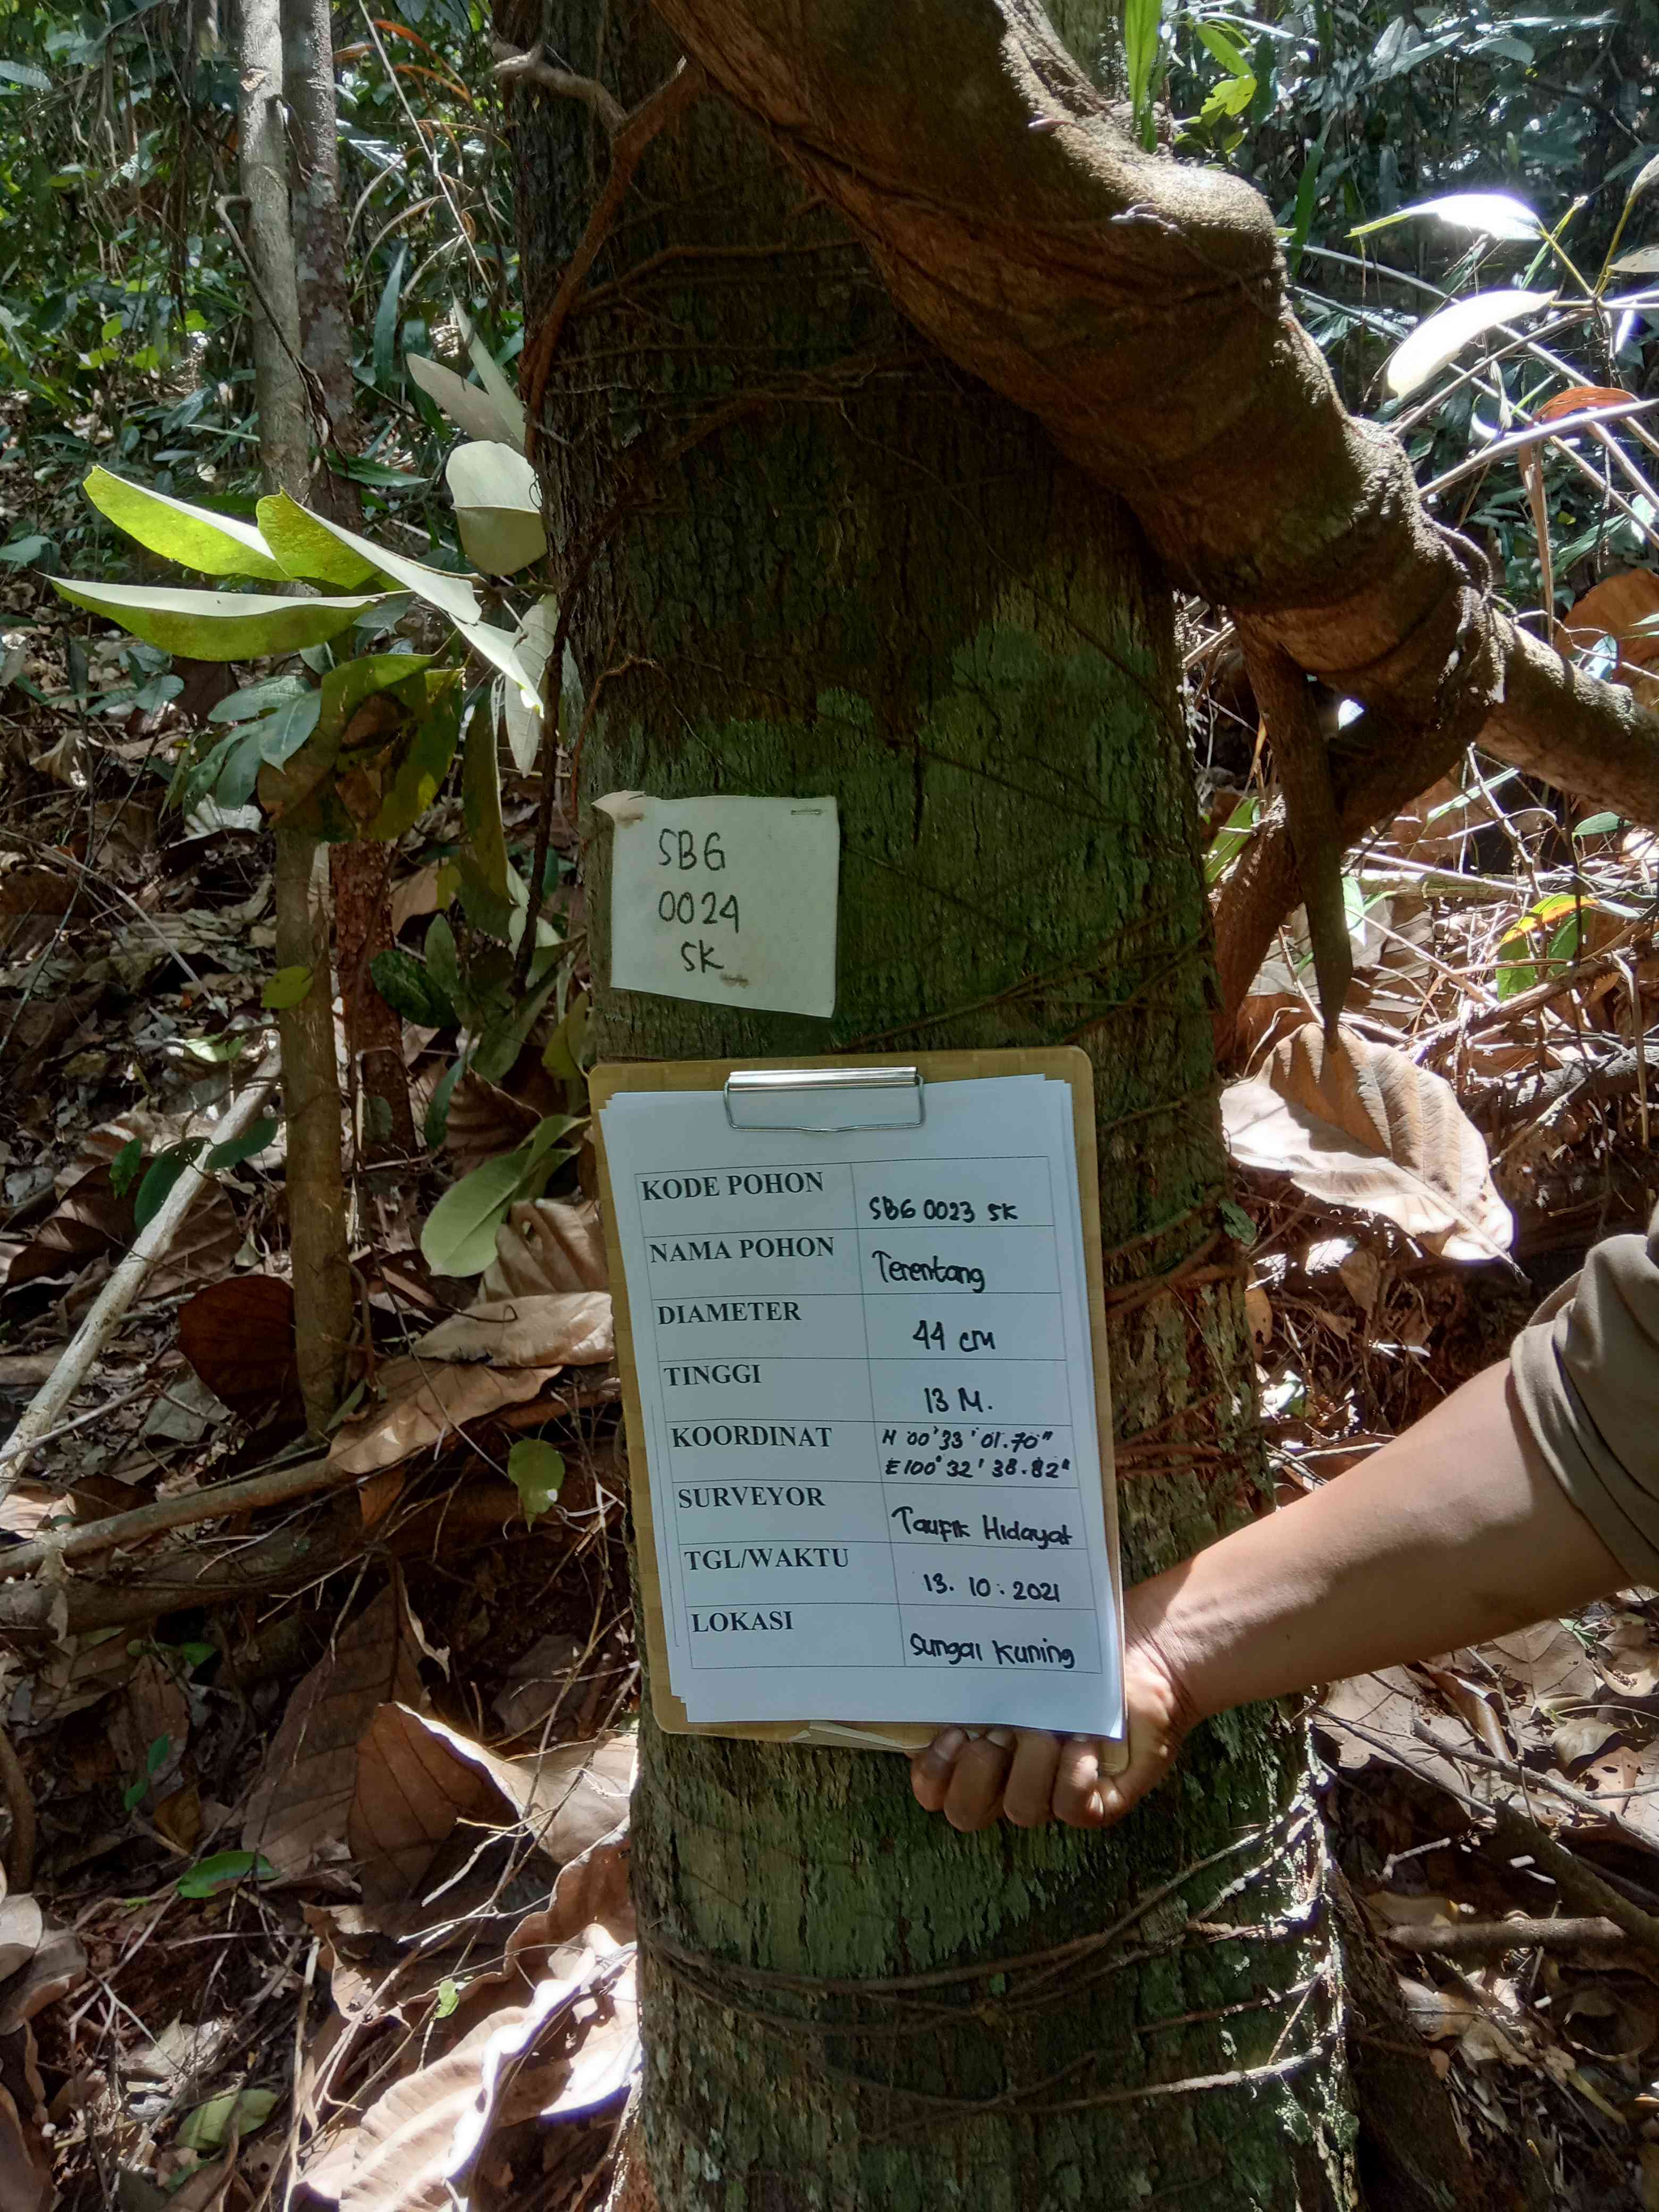 SBG
0024
SK
KODE POHON SBG 0023 SK
NAMA POHON Terentang
DIAMETER 44 cm
TINGGI 13 M.
KOORDINAT N 00°33'01.70"
E 100° 32' 38.82"
SURVEYOR Taufik Hidayat
TGL/WAKTU 13. 10. 2021
LOKASI Sungai Kuning